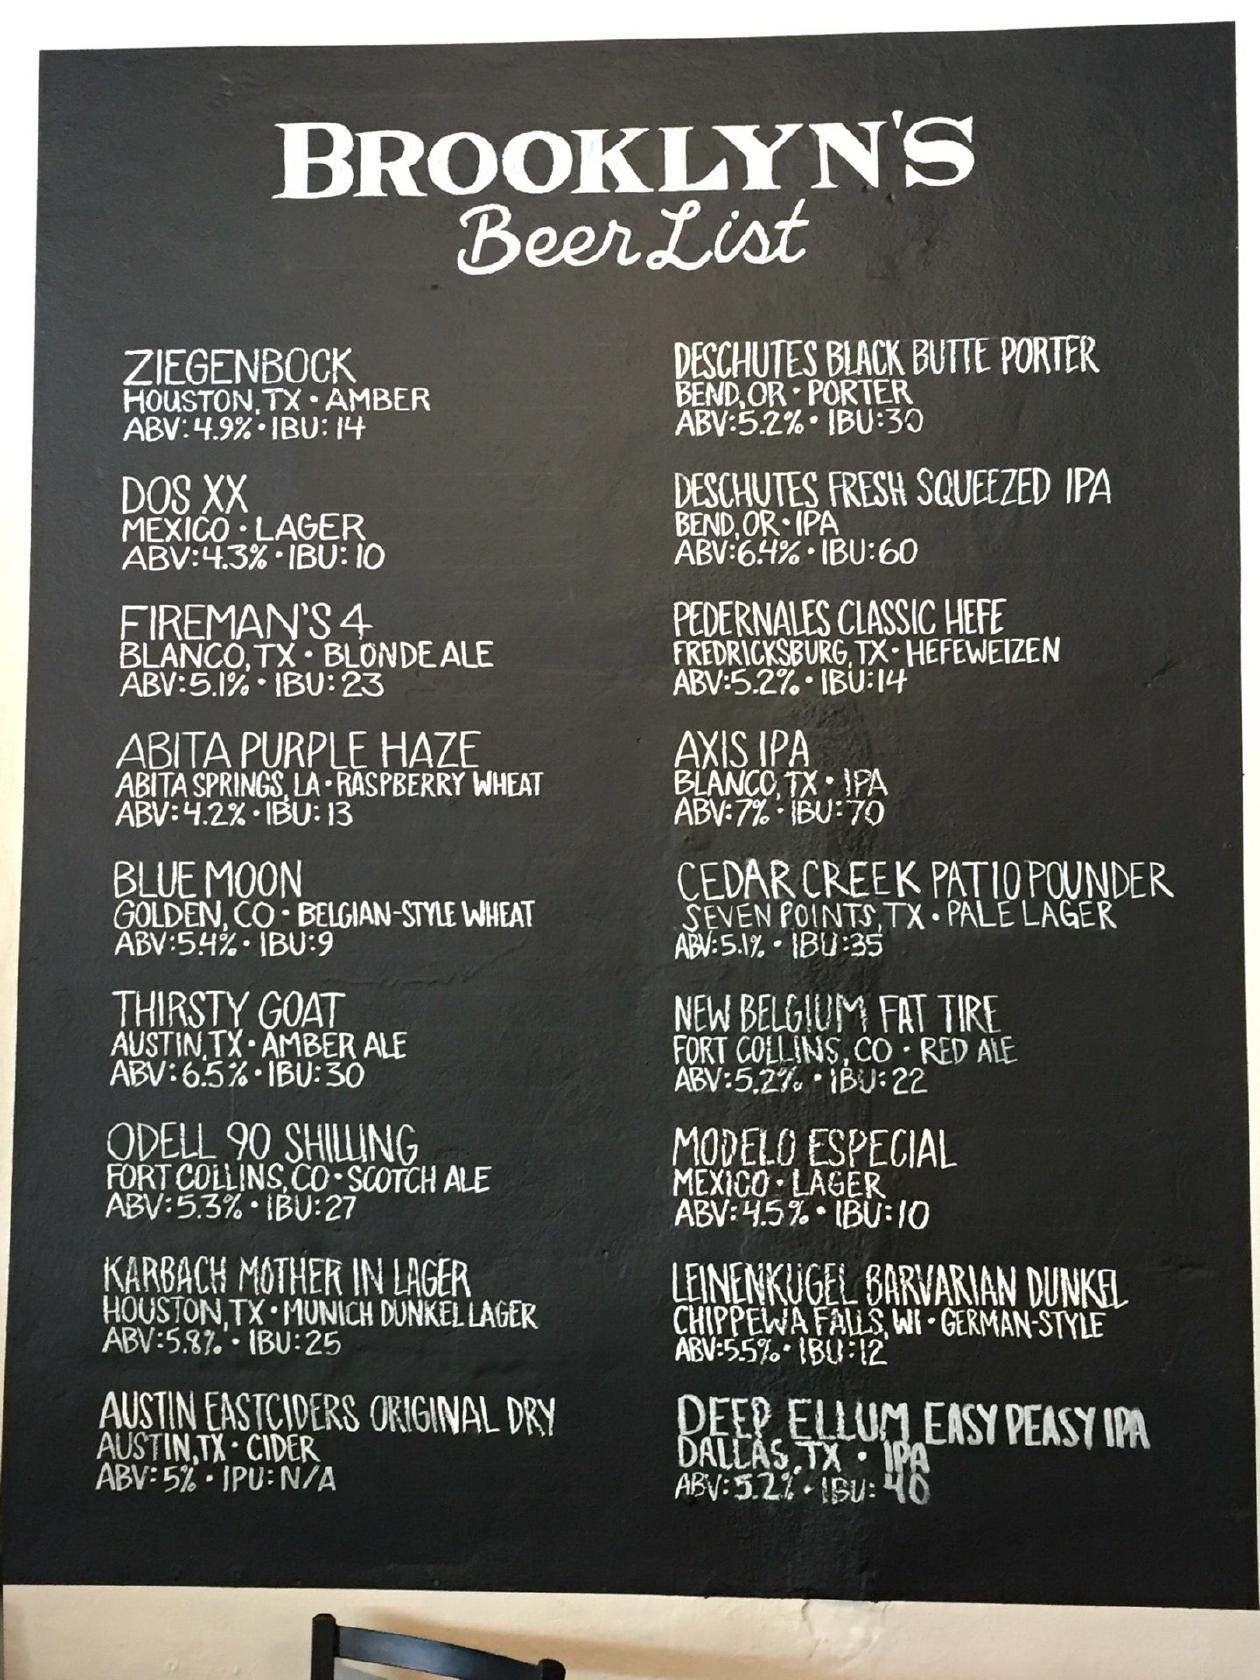 BROOKLYN'S
Beer List
ZIEGENBOCK
HOUSTON, TX • AMBER
ABV: 4.9% • IBU: 14
DOS XX
MEXICO • LAGER
ABV: 4.3% • IBU: 10
FIREMAN'S 4
BLANCO, TX • BLONDE ALE
ABV: 5.1% • IBU: 23
ABITA PURPLE HAZE
ABITA SPRINGS, LA • RASPBERRY WHEAT
ABV: 4.2% • IBU: 13
BLUE MOON
GOLDEN, CO • BELGIAN-STYLE WHEAT
ABV: 5.4% • IBU: 9
THIRSTY GOAT
AUSTIN, TX • AMBER ALE
ABV: 6.5% • IBU: 30
ODELL 90 SHILLING
FORT COLLINS, CO • SCOTCH ALE
ABV: 5.3% • IBU: 27
KARBACH MOTHER IN LAGER
HOUSTON, TX • MUNICH DUNKEL LAGER
ABV: 5.8% • IBU: 25
AUSTIN EASTCIDERS ORIGINAL DRY
AUSTIN, TX • CIDER
ABV: 5% • IPU: N/A
DESCHUTES BLACK BUTTE PORTER
BEND, OR • PORTER
ABV: 5.2% • IBU: 30
DESCHUTES FRESH SQUEEZED IPA
BEND, OR • IPA
ABV: 6.4% • IBU: 60
PEDERNALES CLASSIC HEFE
FREDRICKSBURG, TX • HEFEWEIZEN
ABV: 5.2% • IBU: 14
AXIS IPA
BLANCO, TX • IPA
ABV: 7% • IBU: 70
CEDAR CREEK PATIO POUNDER
SEVEN POINTS, TX • PALE LAGER
ABV: 5.1% • IBU: 35
NEW BELGIUM FAT TIRE
FORT COLLINS, CO • RED ALE
ABV: 5.2% • IBU: 22
MODELO ESPECIAL
MEXICO • LAGER
ABV: 4.5% • IBU: 10
LEINENKUGEL BARVARIAN DUNKEL
CHIPPEWA FALLS, WI • GERMAN-STYLE
ABV: 5.5% • IBU: 12
DEEP ELLUM EASY PEASY IPA
DALLAS, TX • IPA
ABV: 5.2% • IBU: 40